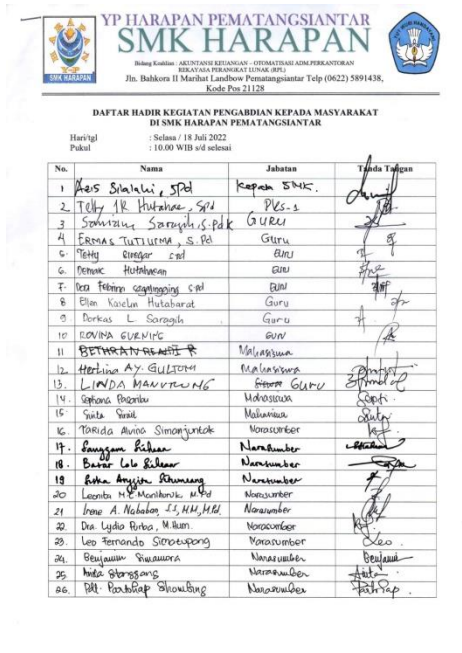 YP HARAPAN PEMATANGSIANTAR
SMK HARAPAN
Bidang Keahlian : AKUNTANSI KEUANGAN - OTOMATISASI ADM.PERKANTORAN
REKAYASA PERANGKAT LUNAK (RPL)
Jln. Bahkora II Marihat Landbow Pematangsiantar Telp (0622) 5891438,
Kode Pos 21128
SMK HARAPAN
DAFTAR HADIR KEGIATAN PENGABDIAN KEPADA MASYARAKAT
DI SMK HARAPAN PEMATANGSIANTAR
Hari/tgl : Selasa / 18 Juli 2022
Pukul : 10.00 WIB s/d selesai
No. Nama Jabatan Tanda Tangan
1 Azis Silalahi, SPd Kepala SMK.
2 Tetty JR Hutahae, SPd PKS-1
3 Saragih, S.PdK GURU
4 ERMAS TUTIURMA, S.Pd Guru
5. Tetty Siregar S.Pd GURU
6. Demak Hutahaean GURU
7. Febrina S.Pd GURU
8 Elfan Kaselin Hutabarat Guru
9 Dorkas L. Saragih Guru
10 ROVINA GURNING GURU
11 Mahasiswa
12. Herlina AY. GULTOM Mahasiswa
13. LINDA MANURUNG GURU
14. Sephana Pasaribu Mahasiswa
15. Sinta Sirait Mahasiswa
16. Tarida Alvina Simanjuntak Narasumber
17. Sanggam Siahaan Narasumber
18. Basar Lolo Siahaan Narasumber
19 Siska Anggita Situmeang Narasumber
20 Leonita M.E. Manihuruk M.Pd Narasumber
21 Irene A. Nababan, S.S, M.M, M.Pd. Narasumber
22. Dra. Lydia Purba, M.Hum. Narasumber
23. Leo Fernando Simatupang Narasumber Leo.
24. Benjamin Simamora Narasumber Benjamin
25 Anita Sitanggang Narasumber Anita
26. Partohap Sihombing Narasumber Partohap